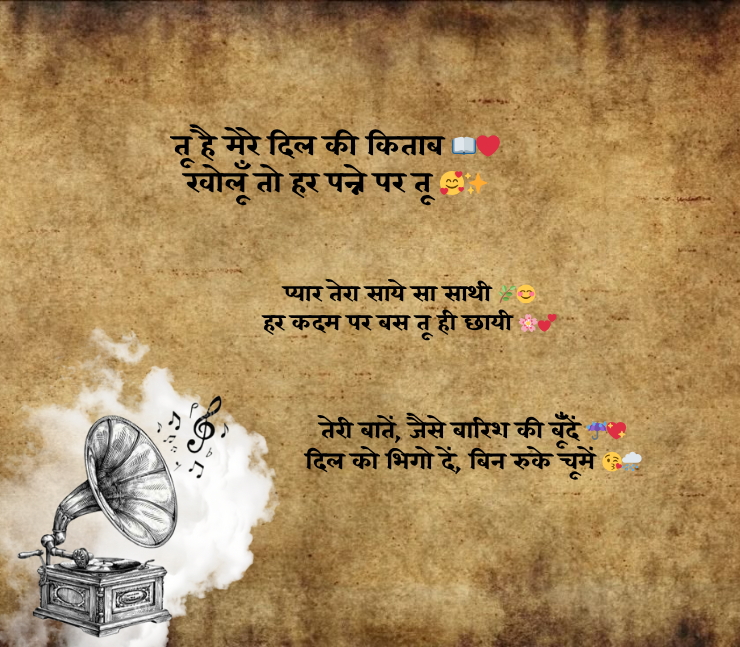 तू है मेरे दिल की किताब 📖❤️
खोलूँ तो हर पन्ने पर तू 🥰✨
प्यार तेरा साये सा साथी 🌿😊
हर कदम पर बस तू ही छायी 🌸💕
तेरी बातें, जैसे बारिश की बूँदें ☔💖
दिल को भिगो दें, बिन रुके चूमें 😘🌧️